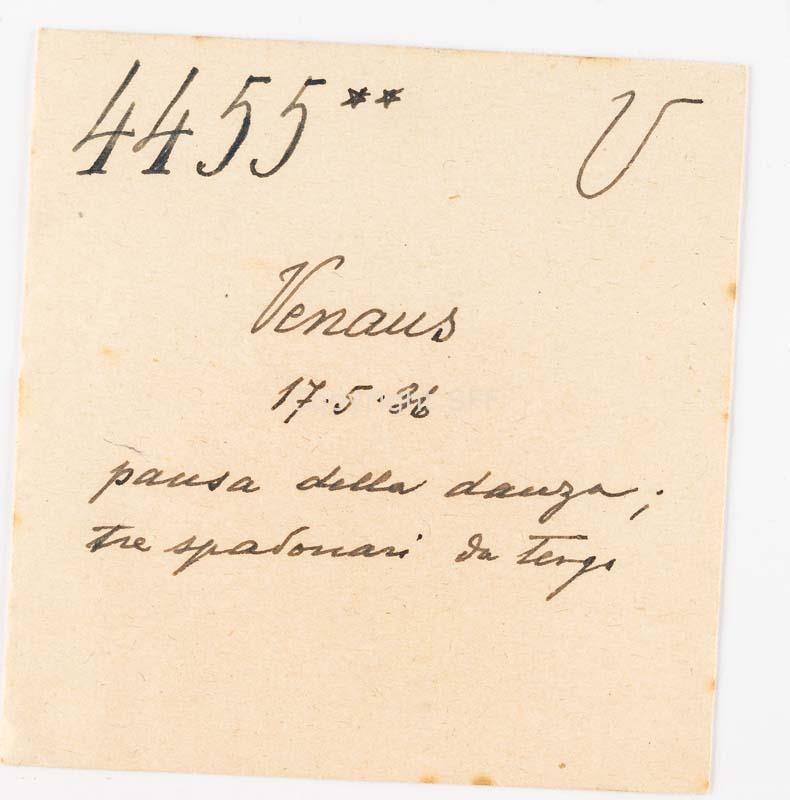 4455** V
Venaus
17.5.36
pausa della danza;
tre spadonari da tergo